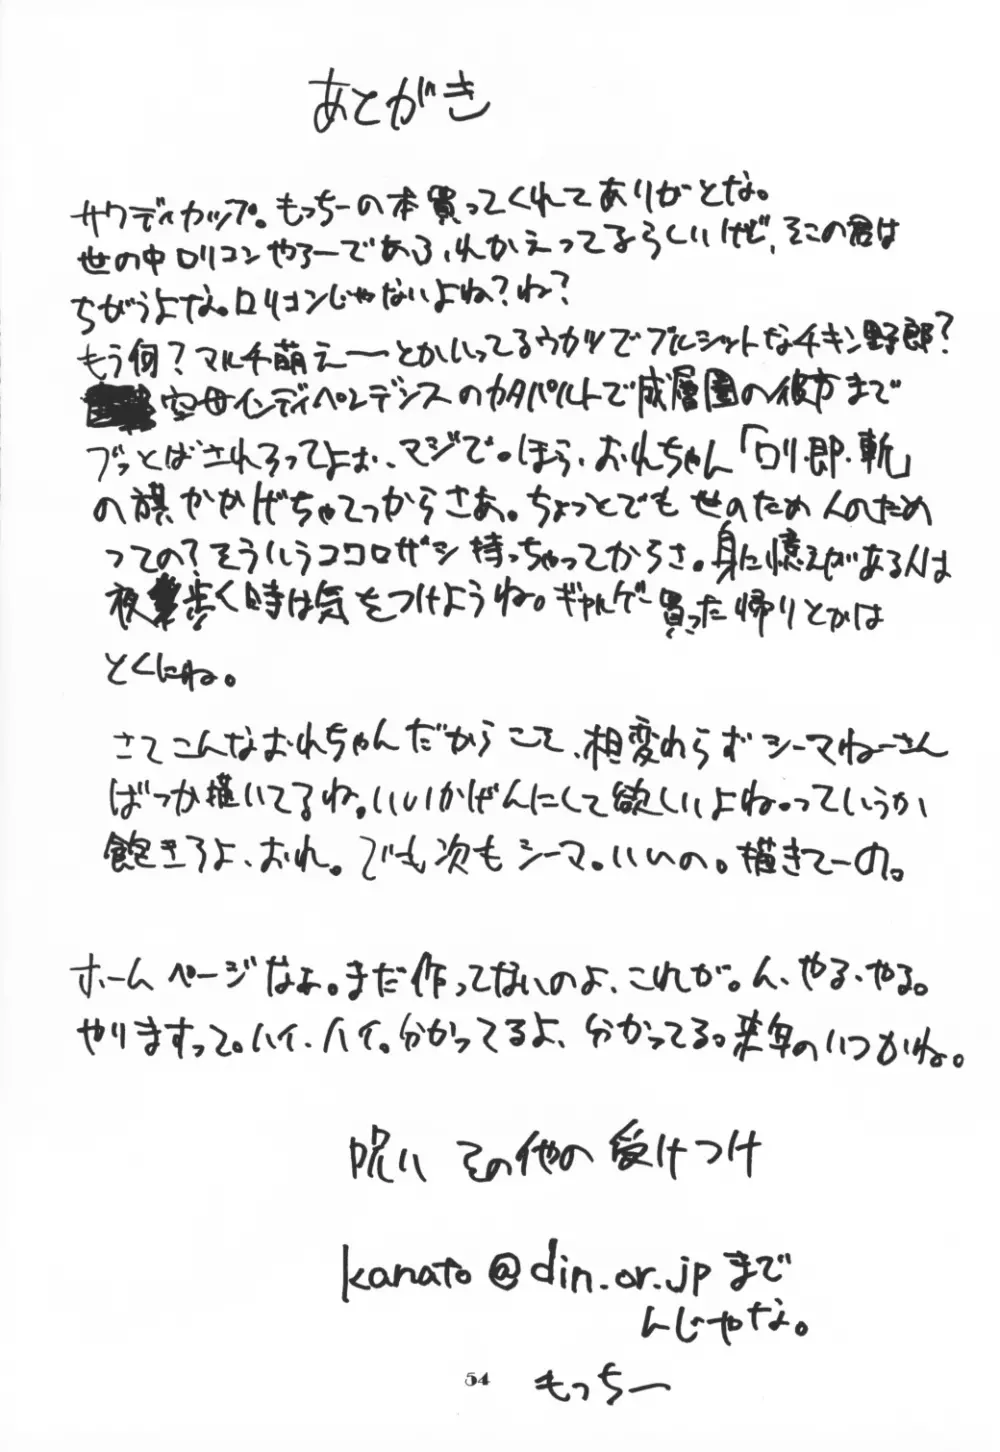 あとがき
サワディカップ。もっちーの本買ってくれてありがとな。
世の中ロリコンやろーであふれかえってるらしいけど、そこの君は
ちがうよな。ロリコンじゃないよね?ね?
もう何?マルチ萌えーとかいってるウカツでブルシットなチキン野郎?
空母インディペンデンスのカタパルトで成層圏の彼方まで
ブッとばされろってよぉ、マジで。ほら、おれちゃん「ロリ・即・斬」
の旗かかげちゃてっからさあ。ちょっとでも世のため人のため
っての?そういうココロザシ持っちゃってからさ。身に憶えがある人は
夜歩く時は気をつけようね。ギャルゲー買った帰りとかは
とくにね。
さてこんなおれちゃんだからこそ、相変わらずシーマねーさん
ばっか描いてるね。いいかげんにして欲しいよね。っていうか
飽きろよ、おれ。でも次もシーマ。いいの。描きてーの。
ホームページなぁ。まだ作ってないのよ、これが。ん、やる、やる。
やりますって。ハイ、ハイ。分かってるよ、分かってる。来年のいつかね。
呪い その他の受けつけ
kanato@din.or.jpまで
んじゃな。
もっちー
54